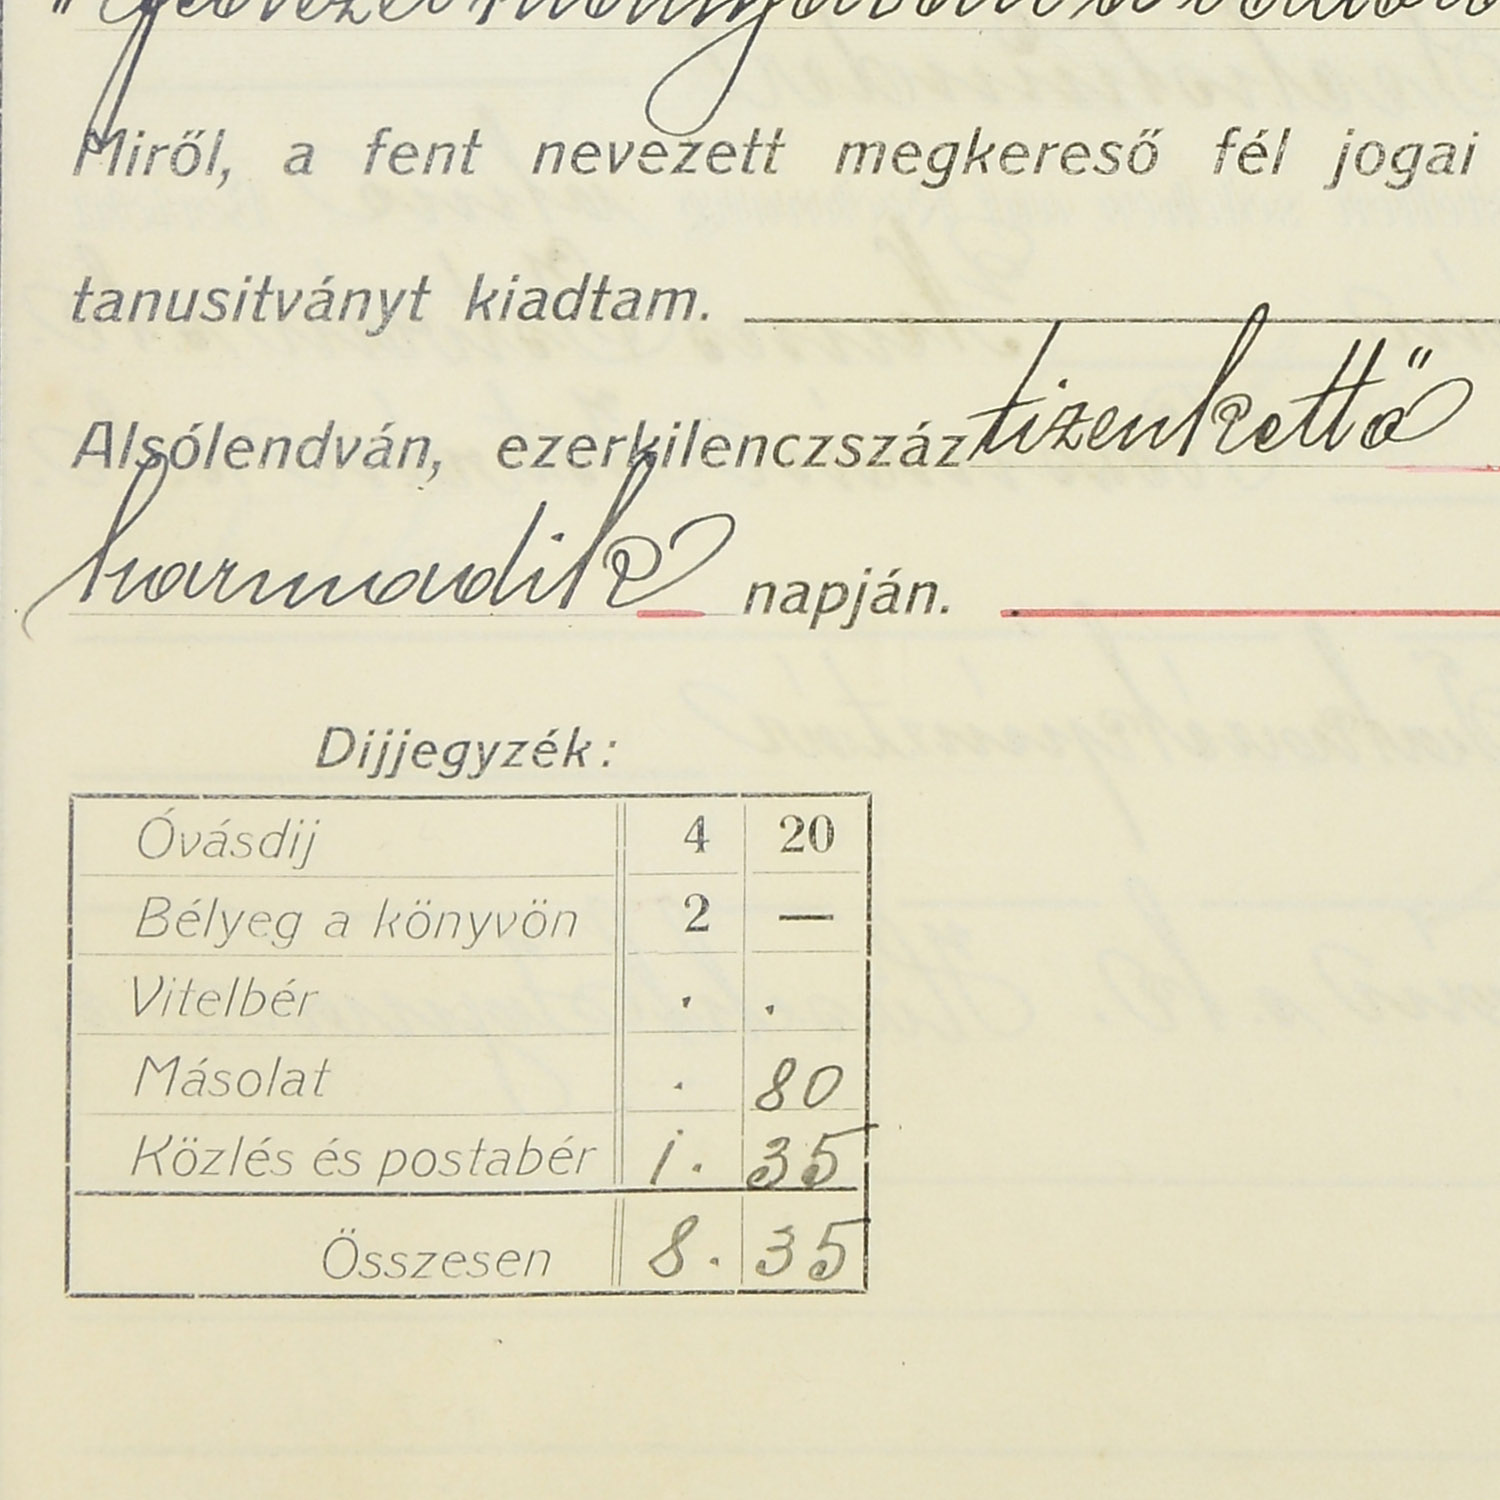 Miről, a fent nevezett megkereső fél jogai
tanusitványt kiadtam.
Alsólendván, ezerkilenczszáz tizenkettő
harmadik napján.
Dijjegyzék:
Óvásdij 4 20
Bélyeg a könyvön 2 —
Vitelbér . .
Másolat . 80
Közlés és postabér 1. 35
Összesen 8. 35